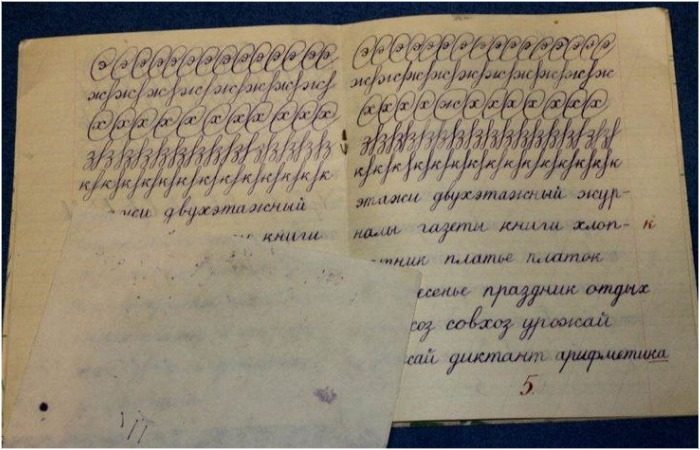 э э э э э э э э э э э э
ж ж ж ж ж ж ж ж
х х х х х х х х х х
з з з з з з з з з з з з
к к к к к к к к к к
двухэтажный
книги
э э э э э э э э э э э э э э
ж ж ж ж ж ж ж ж ж
х х х х ж х х х х х х
з з з з з з з з з з з з з
к к к к к к к к к к к
этажи двухэтажный жур-
налы газеты книги хлоп- к
тник платье платок
сенье праздник отдых
хоз совхоз урожай
жай диктант арифметика
5.